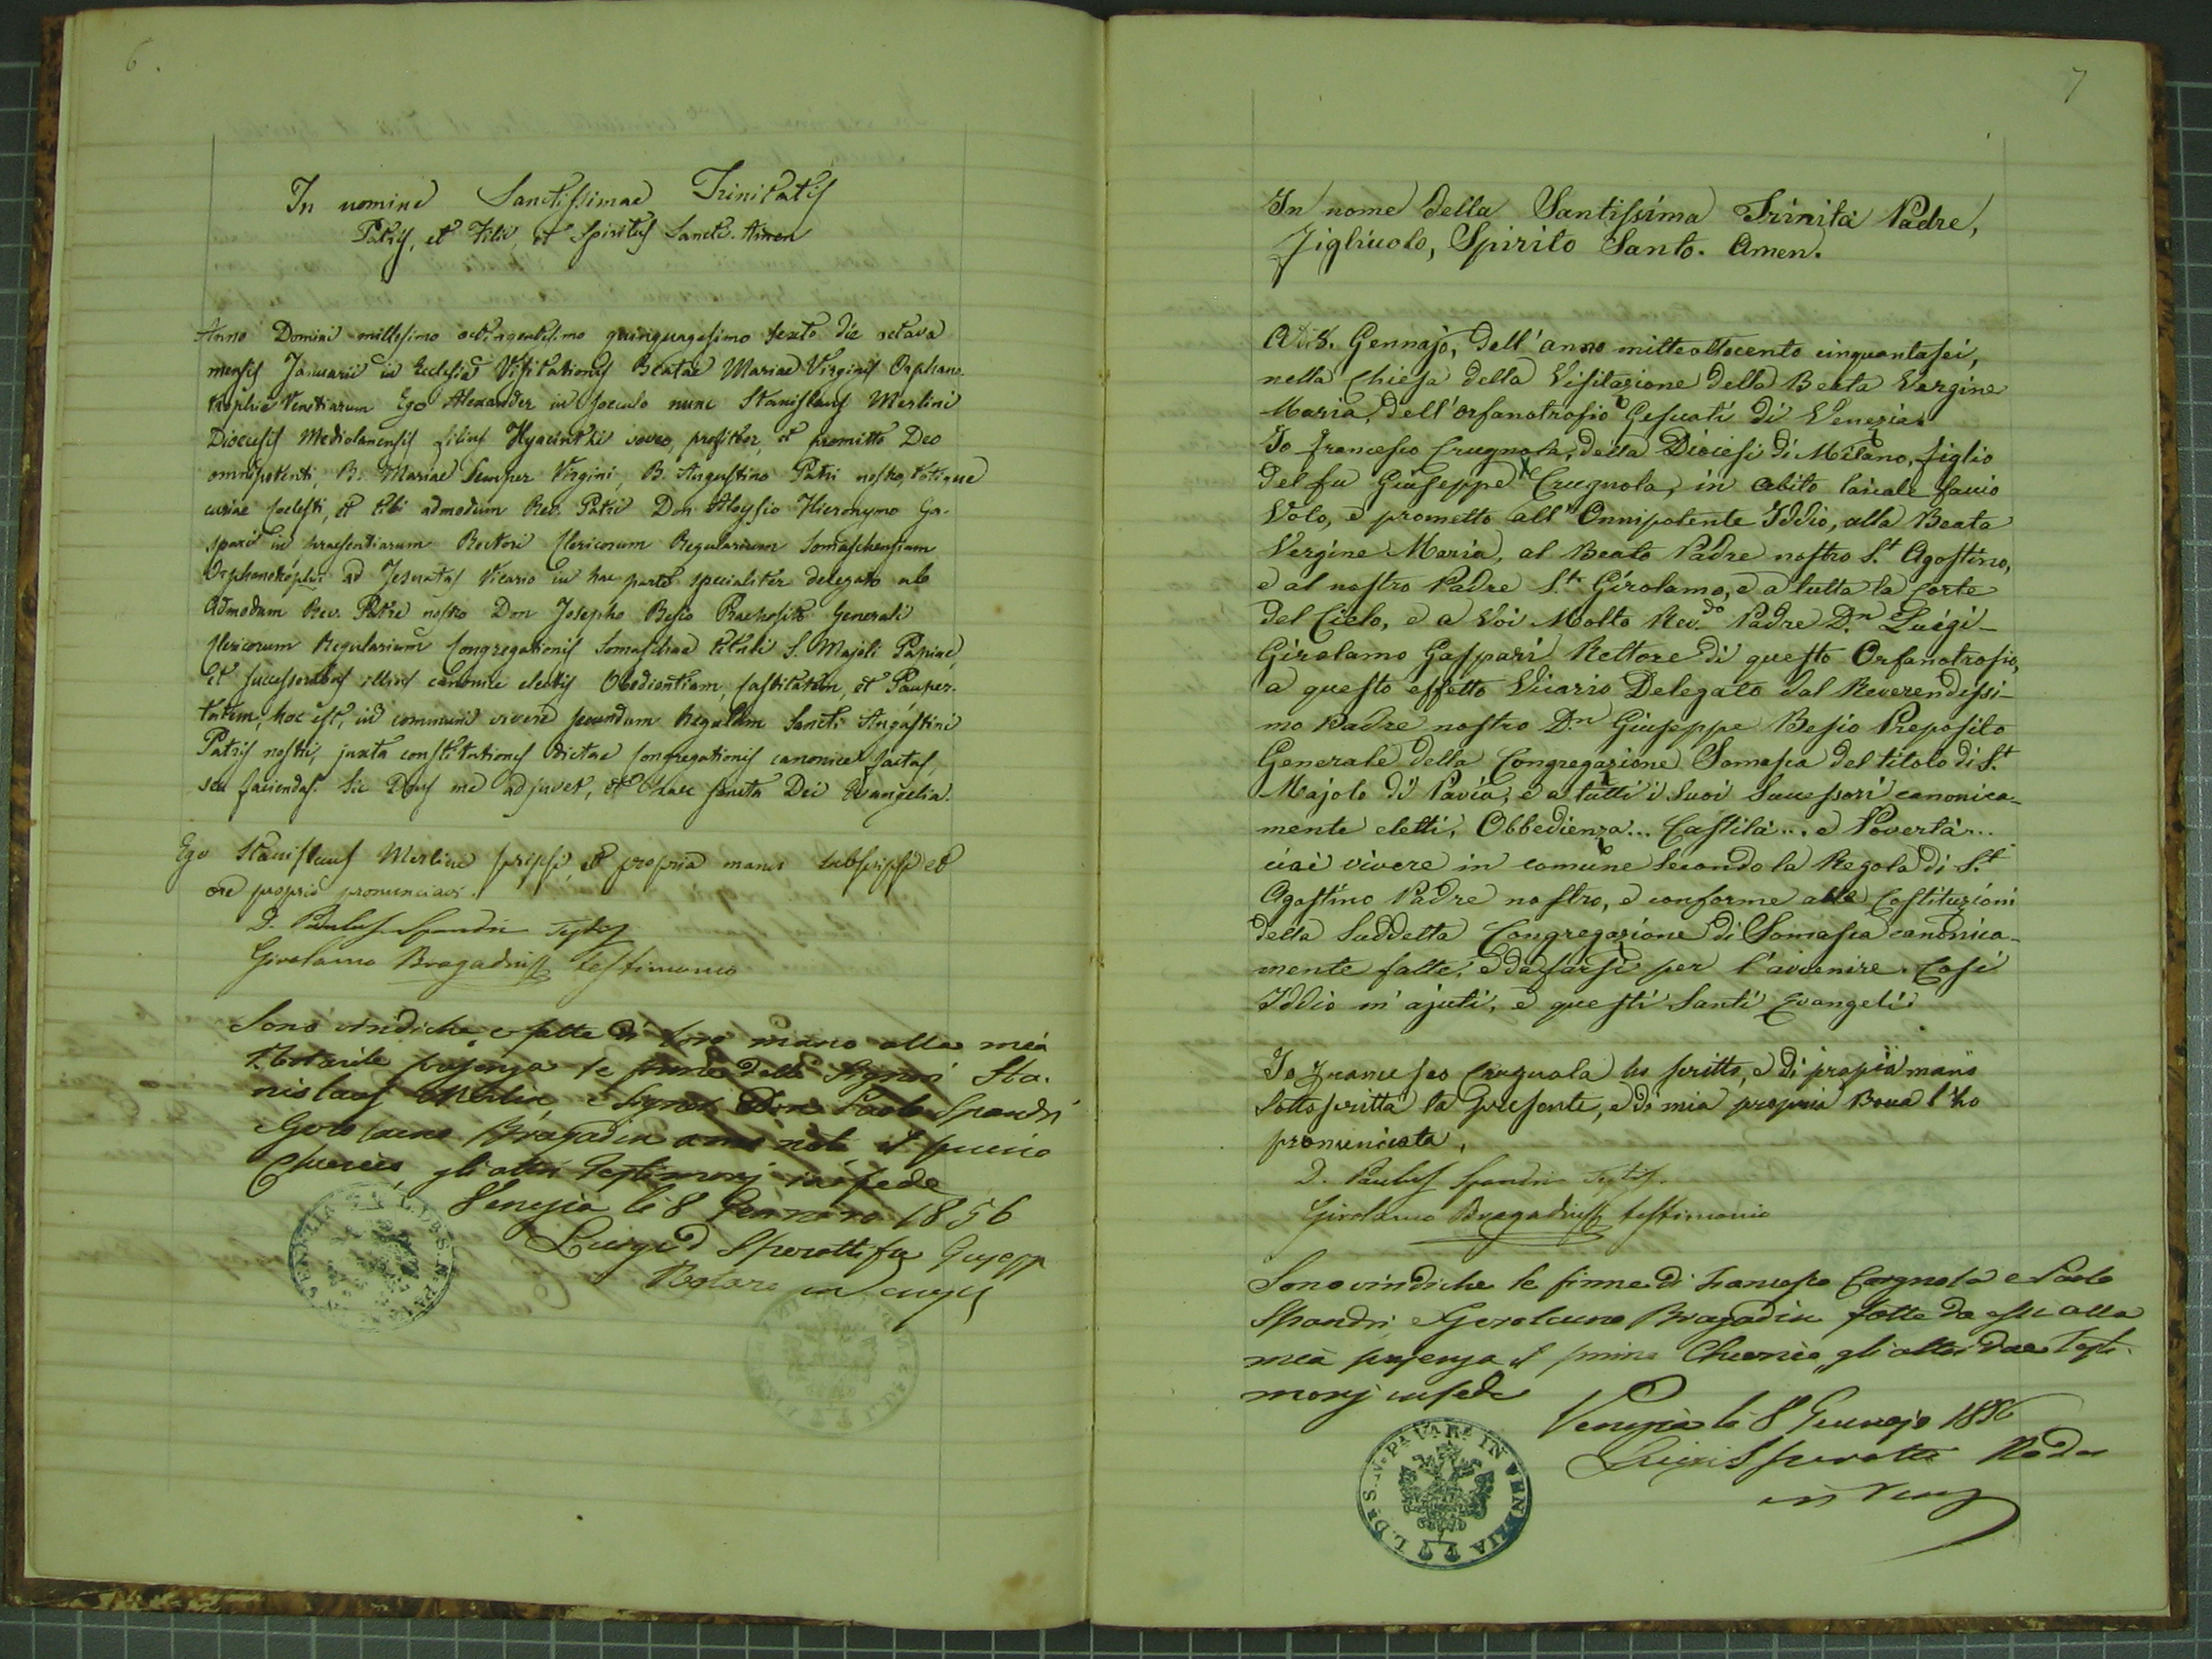 6.
In nomine Sanctissimae Trinitatis
Patris, et Filii, et Spiritus Sancti. Amen
Anno Domini millesimo octingentesimo quinquagesimo sexto die octava
mensis Januarii in Ecclesia Visitationis Beatae Mariae Virginis Orphano-
trophii Venetiarum Ego Alexander in saeculo nunc Stanislaus Merlini
Diocesis Mediolanensis filius Hyacinthi voveo, profiteor, et promitto Deo
omnipotenti, B. Mariae Semper Virgini, B. Augustino Patri nostro, totique
curiae coelesti, et tibi admodum Rev. Patri Don Aloysio Hieronymo Ga-
spari in praesentiarum Rectori Clericorum Regularium Somaschensium
Orphanotrophii ad Jesuatas Vicario in hac parte specialiter delegato ab
Admodum Rev. Patre nostro Don Josepho Besio Praeposito Generali
Clericorum Regularium Congregationis Somaschae tituli S. Majoli Papiae,
et successoribus illius canonice electis Obedientiam, Castitatem, et Pauper-
tatem, hoc est, in communi vivere secundum Regulam Sancti Augustini
Patris nostri, juxta constitutiones dictae Congregationis canonice factas,
seu faciendas. Sic Deus me adjuvet, et haec sancta Dei Evangelia.
Ego Stanislaus Merlini scripsi, et propria manu subscripsi et
ore proprio pronunciavi.
D. Paulus Spandri Testis
Girolamo Bragadin testimonio
Sono vindiche e fatte di loro mano alla mia
Notarile presenza le firme delli Signori Sta-
nislaus Merlini e Signor Don Paolo Spandri
e Gerolamo Bragadin a me noti, il primo
Chierico, gli altri Testimonj in fede
Venezia li 8 Gennaro 1856
Luigi D Sperotti fu Giusepp
Notaro in
7
In nome della Santissima Trinità Padre,
Figliuolo, Spirito Santo. Amen.
Adi 8. Gennajo, dell'anno mille ottocento cinquantasei,
nella Chiesa della Visitazione della Beata Vergine
Maria, dell'orfanotrofio Gesuati di Venezia.
Io Francesco Crugnola, della Diocesi di Milano, figlio
del fu Giuseppe Crugnola, in abito laicale faccio
Voto, e prometto all'Onnipotente Iddio, alla Beata
Vergine Maria, al Beato Padre nostro S.t Agostino,
e al nostro Padre S.t Girolamo, e a tutta la Corte
del Cielo, e a Voi Molto Rev.do Padre D.n Luigi-
Girolamo Gaspari Rettore di questo Orfanotrofio,
a questo effetto Vicario Delegato dal Reverendissi-
mo Padre nostro D.n Giuseppe Besio Preposito
Generale della Congregazione Somasca del titolo di S.t
Majolo di Pavia, e a tutti i Suoi Successori canonica-
mente eletti, Obbedienza... Castità... e Povertà...
cioè vivere in comune secondo la Regola di S.t
Agostino Padre nostro, e conforme alle Costituzioni
della Suddetta Congregazione di Somasca canonica-
mente fatte, e da farsi per l'avvenire. Così
Iddio m'ajuti, e questi Santi Evangeli.
Io Francesco Crugnola ho scritto, e di propia mano
sottoscritta la presente, e di mia propria Boca l'ho
pronunciata.
D. Paulus Spandri Testis.
Girolamo Bragadin testimonio
Sono vindiche le firme di Francesco Corgnola e Paolo
Spandri, e Gerolamo Bragadin fatte da essi alla
mia presenza il primo Chierico, gli altri due Testi-
monj in fede
Venezia li 8 Gennajo 1856
Luigi Sperotti Nodo
in Venez
L. D.r S. N. P. VAR. IN VENEZIA